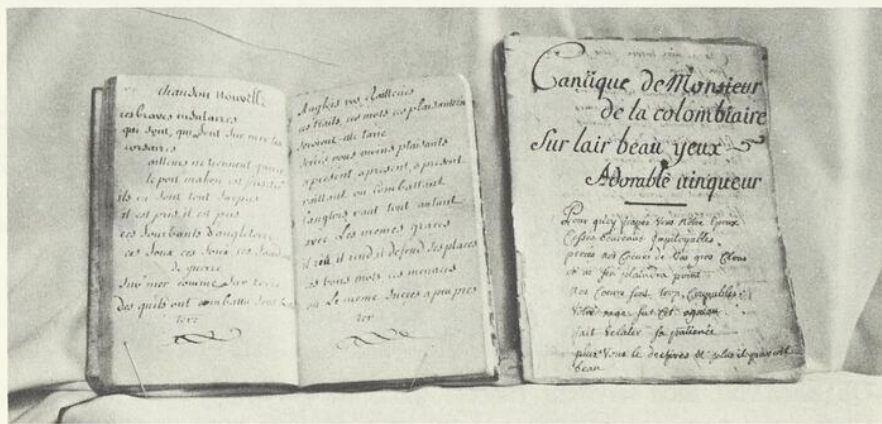 chanson Nouvelle
ces braves insulaires
qui sont, qui sont sur mer les
corsaires
ailleurs ne tiennent guere
le port mahon est pris
ils en sont tout surpris
il est pris il est pris
ces fourbants d'angleterre
ces foux ces foux ces
de guerre
sur mer comme sur terre
des quils ont combattu sont
ter
Anglois vos Railleries
ces traits, ces mots ces plaisanteries
seroient elle tarie
seriés vous moins plaisants
a présent, a présent, a présent
vaillant en combattant
l'anglois vaut tout autant
avec Les memes graces
il rit il rend il defend des places
ces bons mots ces menaces
on Le meme succes a peu pres
ter
Cantique de Monsieur
de la colombiaire
Sur lair beau yeux
Adorable uinqueur
Pour quoy frapés Vous Notre Epoux
Cessés bourreaux impitoyables
percés nos Coeurs de Vos gros Clous
on ne sen plaindra point
nos Coeurs sont trop Coupables
Votre rage sur Cet agneau
fait éclater sa patience
plus Vous le desfirés et plus il paroit
beau